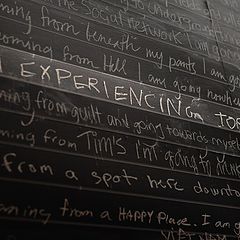 to undergo
The Social Network I am going
ming from beneath my pants I am go
coming from Hell I am going now
EXPERIENCING TO
ming from guilt and going towards myself
ming from Tim's I'm going to
from a spot here downto
aming from a HAPPY Place. I am g